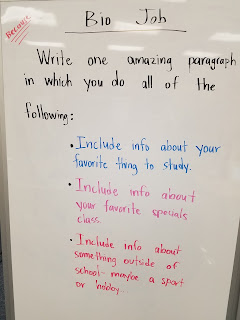 Because
Bio Job
Write one amazing paragraph
in which you do all of the
following:
• Include info about your
favorite thing to study.
• Include info about
your favorite specials
class.
• Include info about
something outside of
school - maybe a sport
or hobby...